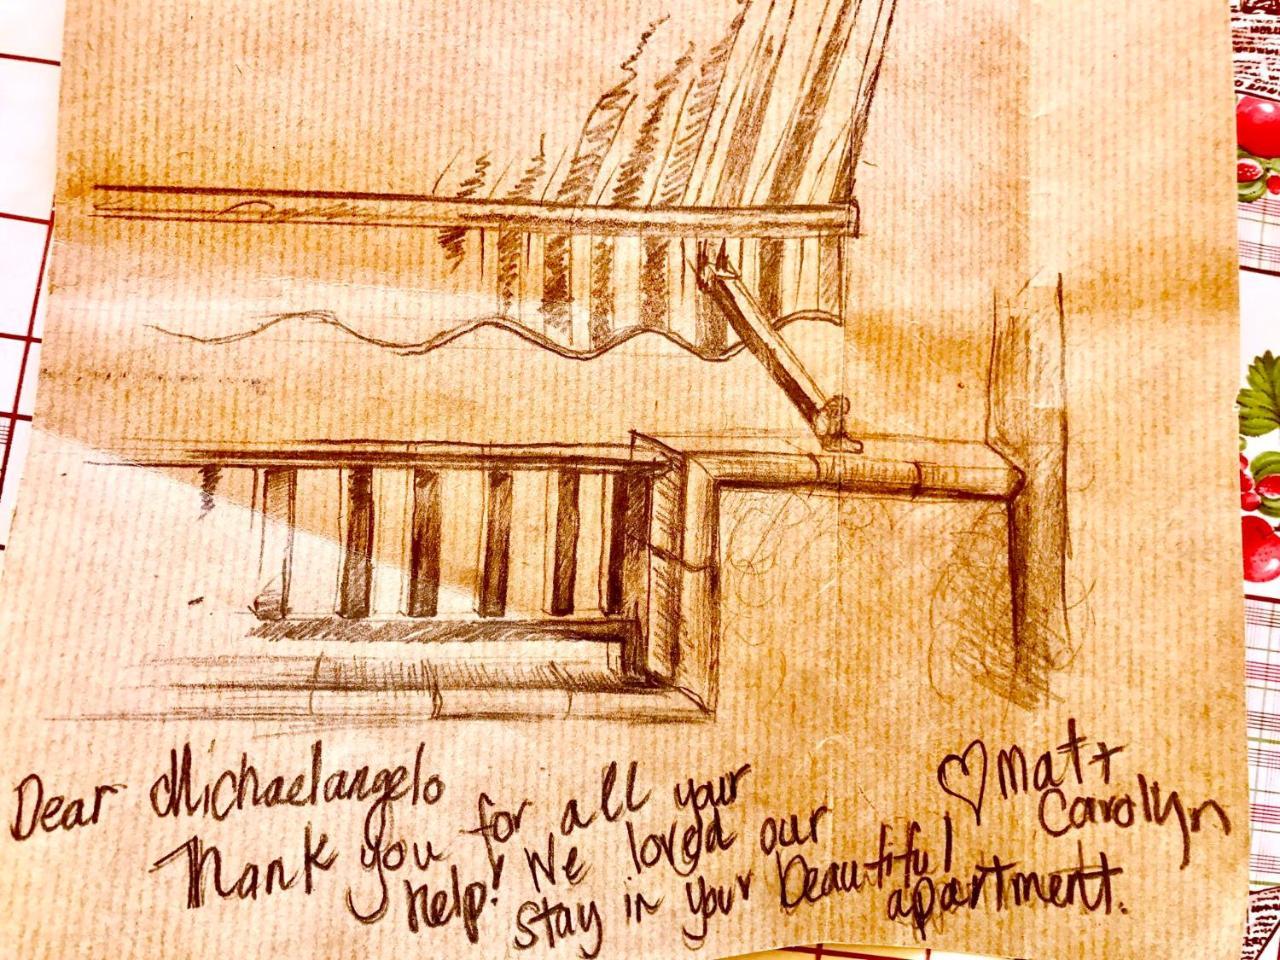 Dear Michaelangelo
Thank you for all your
help! We loved our
stay in your beautiful
apartment.
♡ Matt
Carolyn